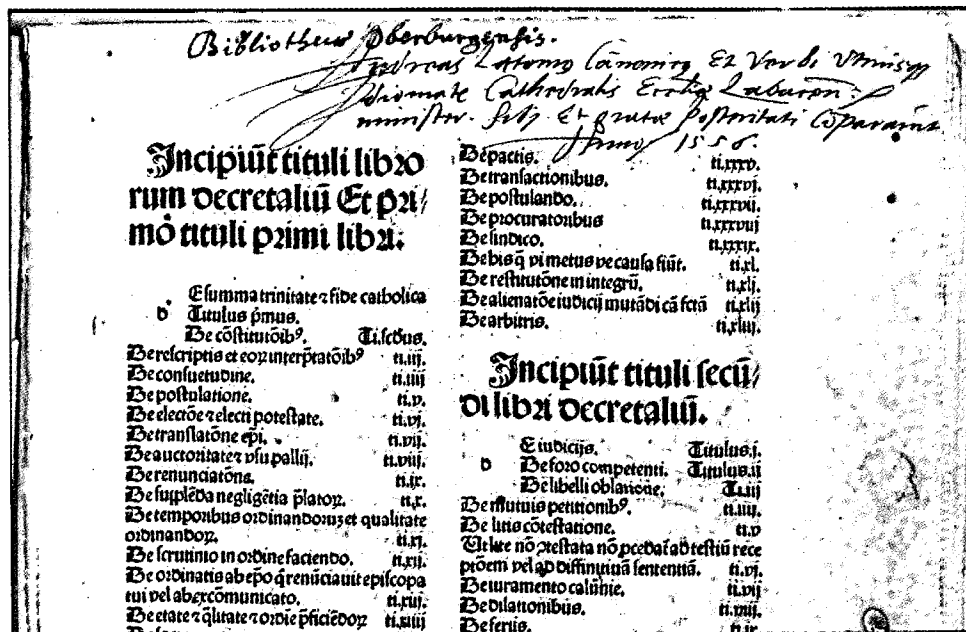 Bibliothecæ Oberburgensis.
Andreas Lattomus Canonicus Et Verbi Utriusque
Idiomate Cathedralis Ecclesiæ Labacen:
minister. sibi Et gratæ Posteritati Coparauit
Anno 1556.
Incipiūt tituli libro
rum decretaliū Et pri/
mo tituli primi libri.
d
E summa trinitate ⁊ fide catholica
Titulus p̄mus.
De cōstitutōibꝰ. Ti.scðus.
De rescriptis et eoꝝ interp̄ratōibꝰ ti.iij.
De consuetudine. ti.iiij
De postulatione. ti.v.
De electōe ⁊ electi potestate. ti.vj.
De translatōne ep̄i. ti.vij.
De auctoritate ⁊ vsu pallij. ti.viij.
De renunciatōne. ti.ix.
De supplēda negligētia p̄latoꝝ. ti.x.
De temporibus ordinandoruꝫ et qualitate
ordinandoꝝ. ti.xj.
De scrutinio in ordine faciendo. ti.xij.
De ordinatis ab ep̄o q̇ renūciauit episcopa
tui vel ab excōmunicato. ti.xiij.
De etate ⁊ q̄litate ⁊ ordīe p̄ficiēdoꝝ ti.xiiij
De pactis. ti.xxxv.
De transactionibus. ti.xxxvj.
De postulando. ti.xxxvij.
De procuratoribus ti.xxxviij
De sindico. ti.xxxix.
De his q̄ vi metus ve causa fiūt. ti.xl.
De restitutōne in integrū. ti.xlj.
De alienatōe iudicij mutādi cā fctā ti.xlij
De arbitris. ti.xliij.
Incipiūt tituli secū/
di libri decretaliū.
d
E iudicijs. Titulus.j.
De foro competenti. Titulus.ij
De libelli oblatione. Ti.iij
De mutuis petitionibꝰ. ti.iiij.
De litis cōtestatione. ti.v
Ut lite nō ꝯtestata nō ꝓcedat̄ ad testiū rece
ptōem vel ad diffinitiuā sententiā. ti.vj.
De iuramento calūnie. ti.vij
De dilationibus. ti.viij.
De ferijs. ti.ix.